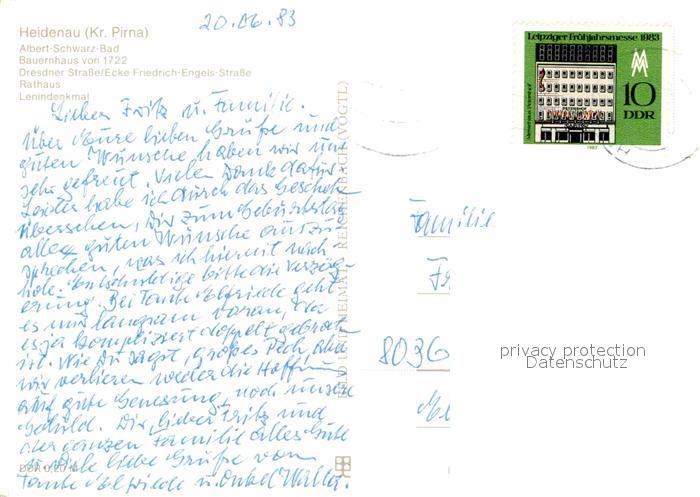 20.06.83
Heidenau (Kr. Pirna)
Albert-Schwarz-Bad
Bauernhaus von 1722
Dresdner Straße/Ecke Friedrich-Engels-Straße
Rathaus
Lenindenkmal
Lieber Fritz u. Familie.
Über Eure lieben Grüße und
guten Wünsche haben wir uns
sehr gefreut. Vielen Dank dafür.
Leider habe ich durch das Geschehen
übersehen, Dir zum Geburtstag
alles guten Wünsche auszu-
sprechen, was ich hiermit nach-
hole. Entschuldige bitte die Verzög-
erung. Bei Tante Elfriede geht
es nur langsam voran, da
es ja kompliziert doppelt gebrochen
ist. Wie Du sagst, großes Pech, aber
wir verlieren weder die Hoffnung
auf gute Genesung, noch unsere
Geduld. Dir, lieber Fritz und
der ganzen Familie alles Gute
u. viele liebe Grüße von
Tante Elfriede u. Onkel Walter.
DDR 0,20 M
BILD UND HEIMAT REICHENBACH (VOGTL)
Leipziger Frühjahrsmesse 1983
Messehaus Petershof
PETERSHOF
10
DDR
1983
Familie
8036
privacy protection
Datenschutz